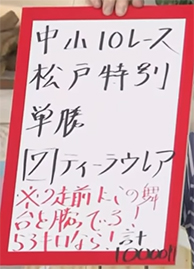 中山10レース
松戸特別
単勝
⑦ティーラウレア
※2走前にこの舞
台を勝ってる!
53キロなら!計
10000!!